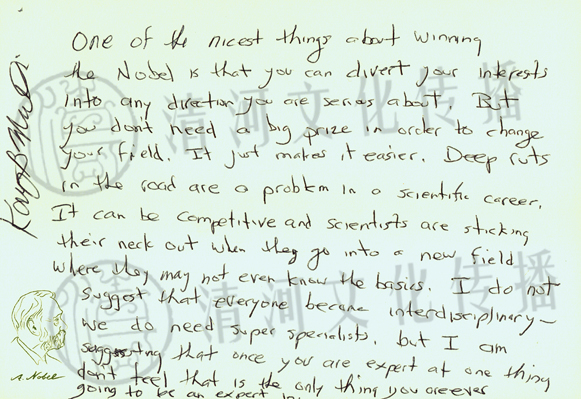 One of the nicest things about winning
the Nobel is that you can divert your interests
into any direction you are serious about. But
you don't need a big prize in order to change
your field. It just makes it easier. Deep ruts
in the road are a problem in a scientific career.
It can be competitive and scientists are sticking
their neck out when they go into a new field
where they may not even know the basics. I do not
suggest that everyone became interdisciplinary—
we do need super specialists, but I am
suggesting that once you are expert at one thing
don't feel that is the only thing you are ever
going to be an expert in.
Kary B Mullis
A. Nobel
清河文化传播
清河文化传播